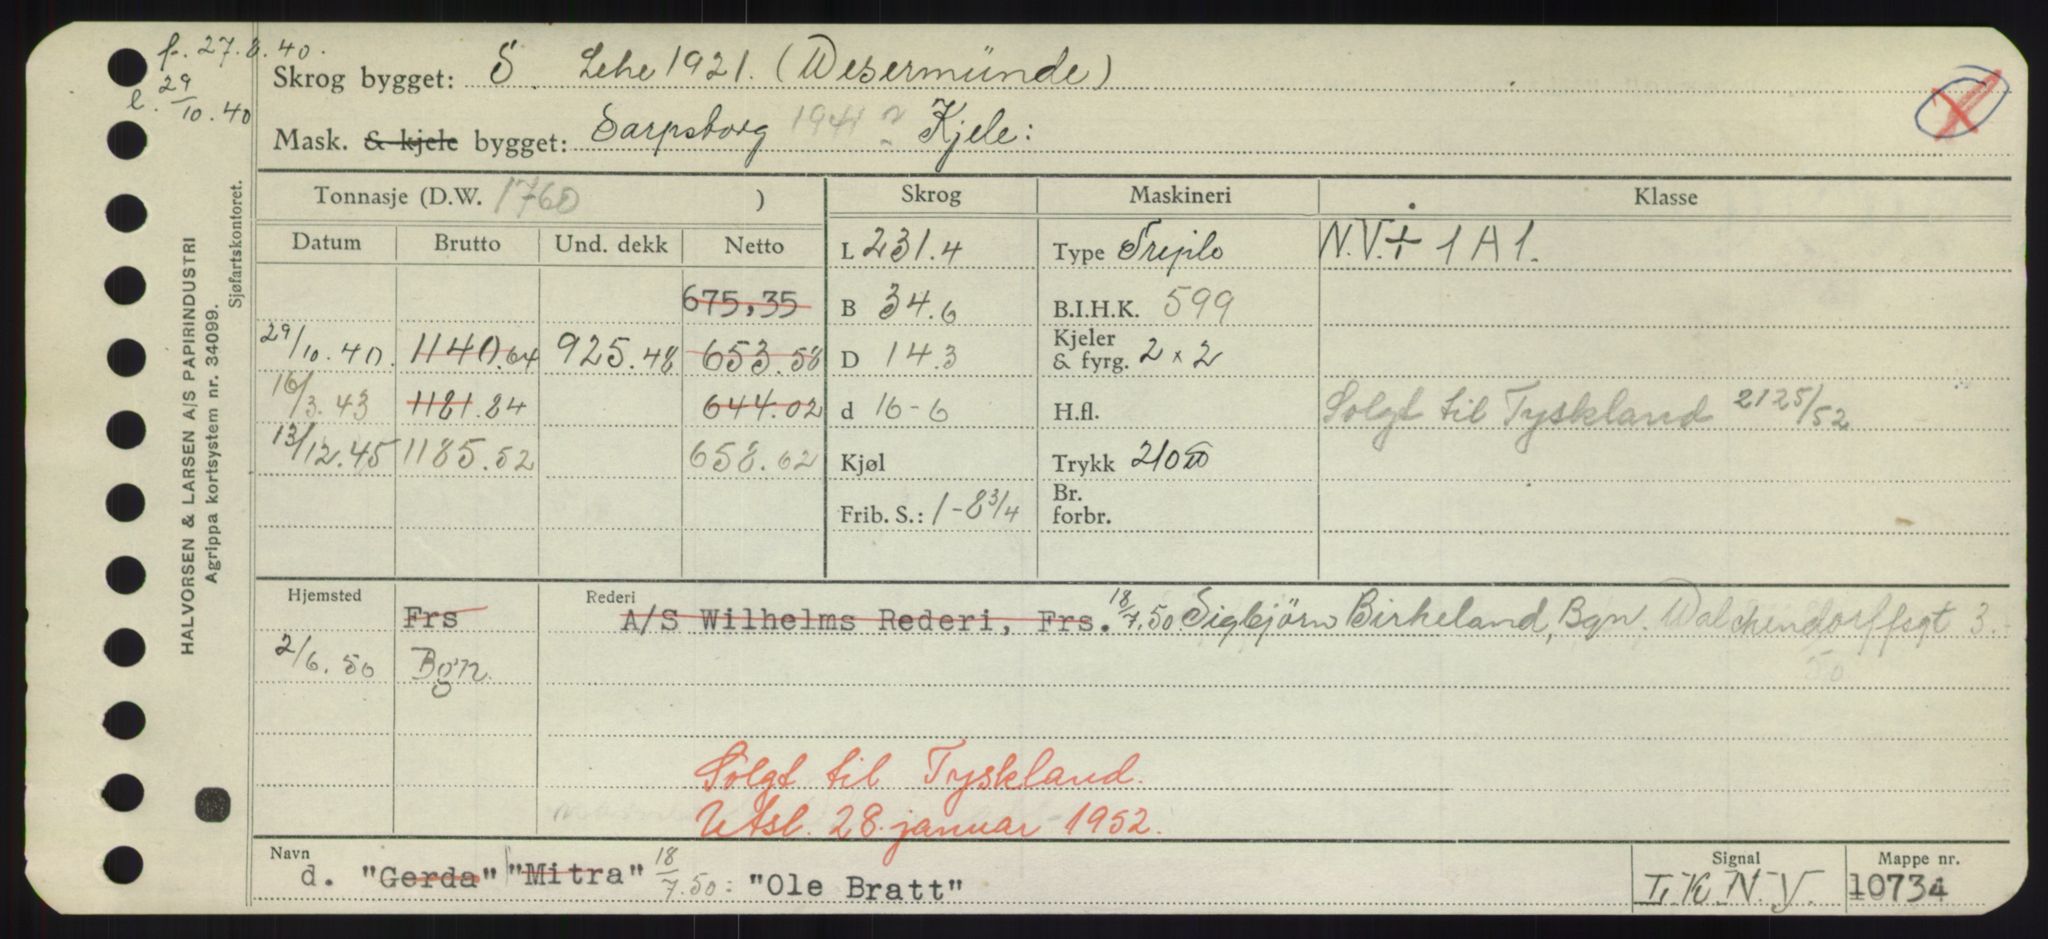 f. 27.8.40.
l. 29/10.40
Skrog bygget: S Lehe 1921. (Wesermünde)
Mask. & kjele bygget: Sarpsborg 1941 ? Kjele:
Tonnasje (D.W. 1760 ) Skrog Maskineri Klasse
Datum Brutto Und. dekk Netto L 231.4 Type Tripilo N.V.+ 1 A 1.
675,35 B 34.6 B.I.H.K. 599
29/10.40. 1140.64 925.48 653.58 D 14.3 Kjeler & fyrg. 2 x 2
16/3.43 1181.84 644.02 d 16-6 H.fl. Solgt til Tyskland 2125/52
13/12.45 1185.52 658.62 Kjøl Trykk 210
Frib. S.: 1-8 3/4 Br. forbr.
Hjemsted Frs Rederi A/S Wilhelms Rederi, Frs. 18/7.50 Sigbjörn Birkeland, Bgn. Walchendorffsgt 3.-
2/6.50 Bgn. 50
Solgt til Tyskland.
Utsl. 28. januar 1952.
Navn d. "Gerda" "Mitra" 18/7.50: "Ole Bratt" Signal L.K.N.Y. Mappe nr. 10734
HALVORSEN & LARSEN A/S PAPIRINDUSTRI
Agrippa kortsystem nr. 34099.
Sjøfartskontoret.